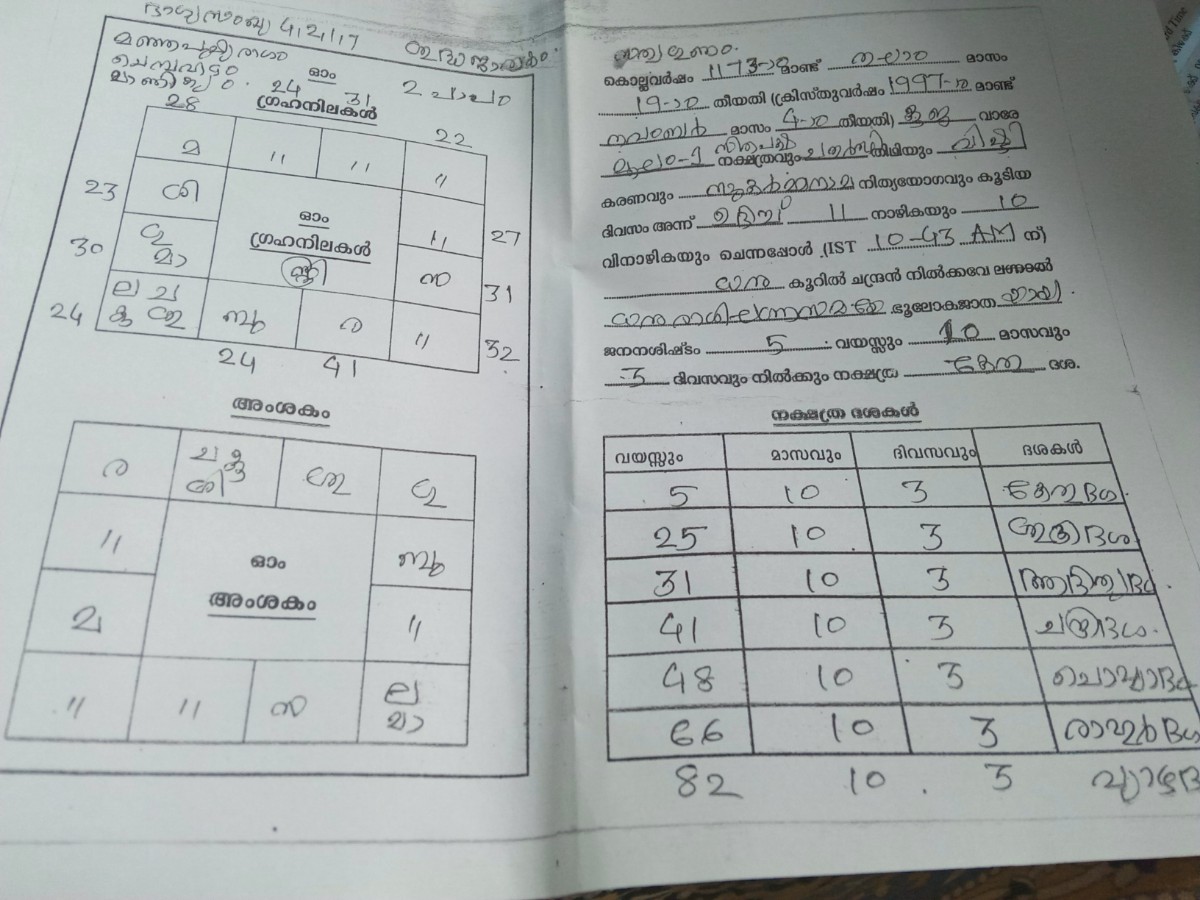 ഭാഗ്യസംഖ്യ 4,2,1,7
ശുദ്ധജാതകം
ചൊവ്വ
24 ഓം 31 2 പാപം
28 ഗ്രഹനിലകൾ 22
മ " " "
23 ശി
ഓം
ഗ്രഹനിലകൾ
സ്ത്രീ
" 27
30 വ്യ മാ
സ 31
24 ല ച കു ശു
ബു ര " 32
24 41
അംശകം
ര ച കു ശി ശു വ്യ
" ഓം ബു
അംശകം
മ "
" " സ ല മാ
കൊല്ലവർഷം 1173-ാ മാണ്ട് തുലാം മാസം
19-ാം തീയതി (ക്രിസ്തുവർഷം 1997-ാ മാണ്ട്
നവംബർ മാസം 4-ാം തീയതി) കുജ വാരേ
മൂലം-1 നക്ഷത്രവും ചതുർത്ഥി തിഥിയും വിഷ്ടി
കരണവും സുകർമ്മനാമ നിത്യയോഗവും കൂടിയ
ദിവസം അന്ന് ഉദിച്ച് 11 നാഴികയും 10
വിനാഴികയും ചെന്നപ്പോൾ (IST 10-43 AM ന്)
ധനു കൂറിൽ ചന്ദ്രൻ നിൽക്കവേ ലഗ്നത്തൽ
ധനുരാശിലഗ്നസമയേ ഭൂലോകജാത യായി.
ജനനശിഷ്ടം 5 വയസ്സും 10 മാസവും
3 ദിവസവും നിൽക്കും നക്ഷത്ര കേതു ദശ.
നക്ഷത്ര ദശകൾ
വയസ്സും മാസവും ദിവസവും ദശകൾ
5 10 3 കേതുദശ.
25 10 3 ശുക്രദശ
31 10 3 ആദിത്യദശ.
41 10 3 ചന്ദ്രദശ.
48 10 3 ചൊവ്വാദശ
66 10 3 രാഹുർദശ
82 10 3 വ്യാഴദ